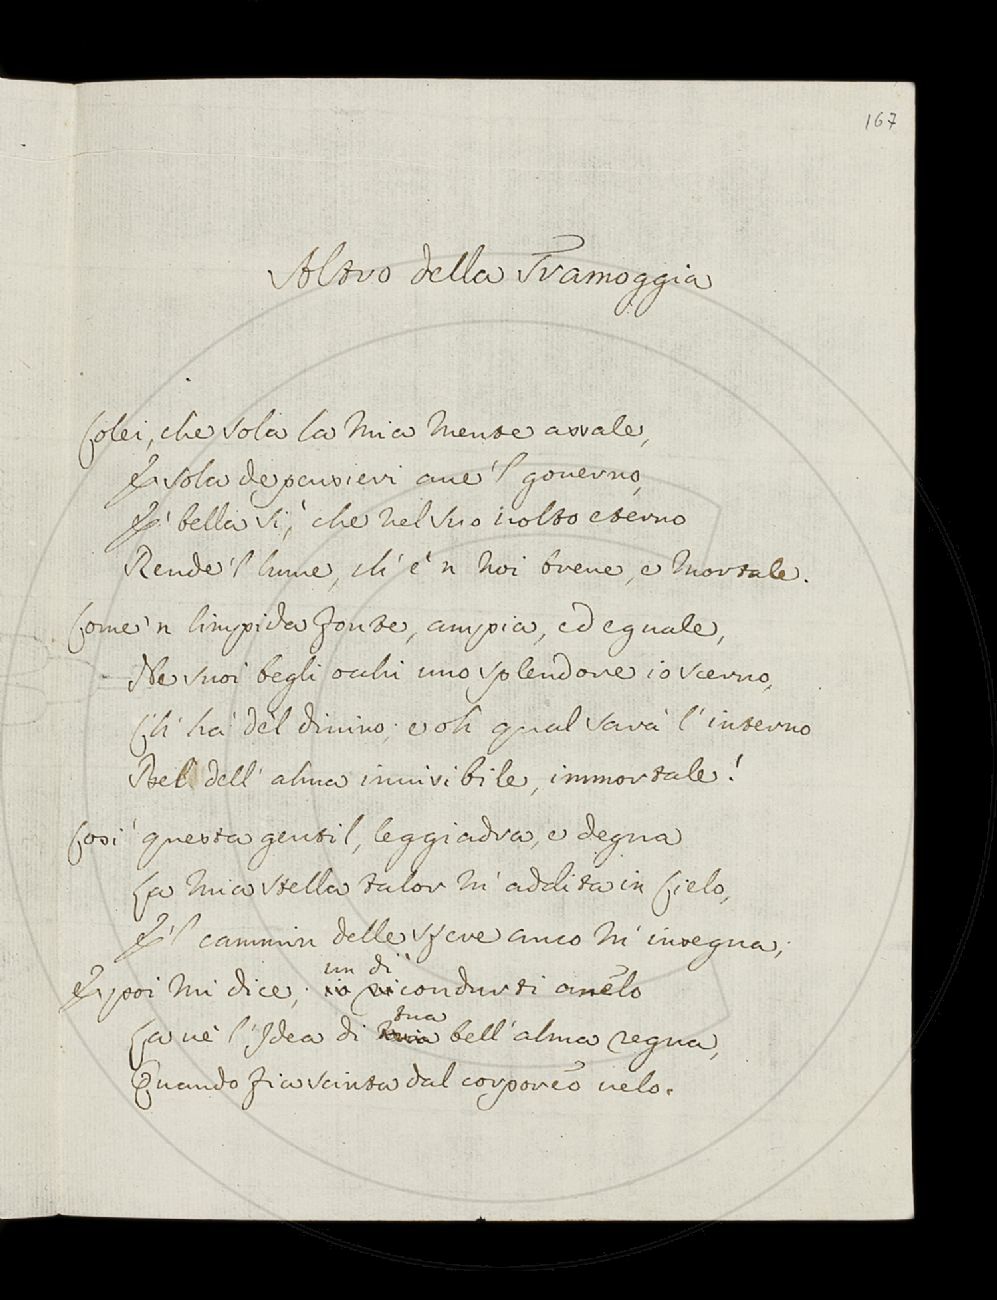 167
Altro della Tramoggia
Colei, che sola la mia mente assale,
E sola de pensieri aue 'l gouerno,
E' bella si, che nel suo uolto eterno
Rende 'l lume, ch' è 'n noi breue, e mortale.
Come 'n limpida fonte, ampia, ed eguale,
Ne suoi begli occhi uno splendore io scerno,
Ch' ha del diuino; e oh qual sarà l' interno
Bel dell' alma inuisibile, immortale!
Cosi questa gentil, leggiadra, e degna
La mia stella talor m' addita in Cielo,
E 'l cammin delle sfere anco m' insegna;
un dì
E poi mi dice, io ricondurti anelo
tua
La ue l' Idea di mia bell' alma regna,
Quando fia scinta dal corporeo uelo.